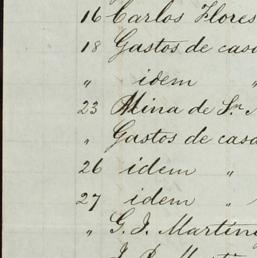 16 Carlos Flores
18 Gastos de casa
" idem "
23 Mina de Sn.
" Gastos de casa
26 idem "
27 idem "
" G. J. Martin